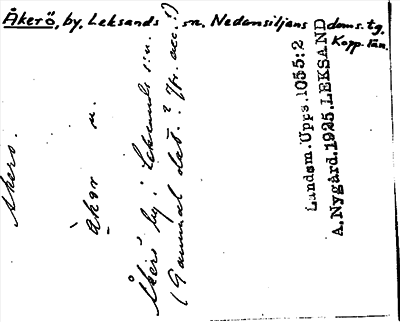 Åkerö, by, Leksands sn. Nedansiljans doms.tg.
Kopp. län.
Åkerö.
Åker n.
Åkerö by i Leksands s:n.
(Gammal dat.? Jfr. acc.!)
Landsm.Upps.1055:2
A.Nygård.1925.LEKSAND